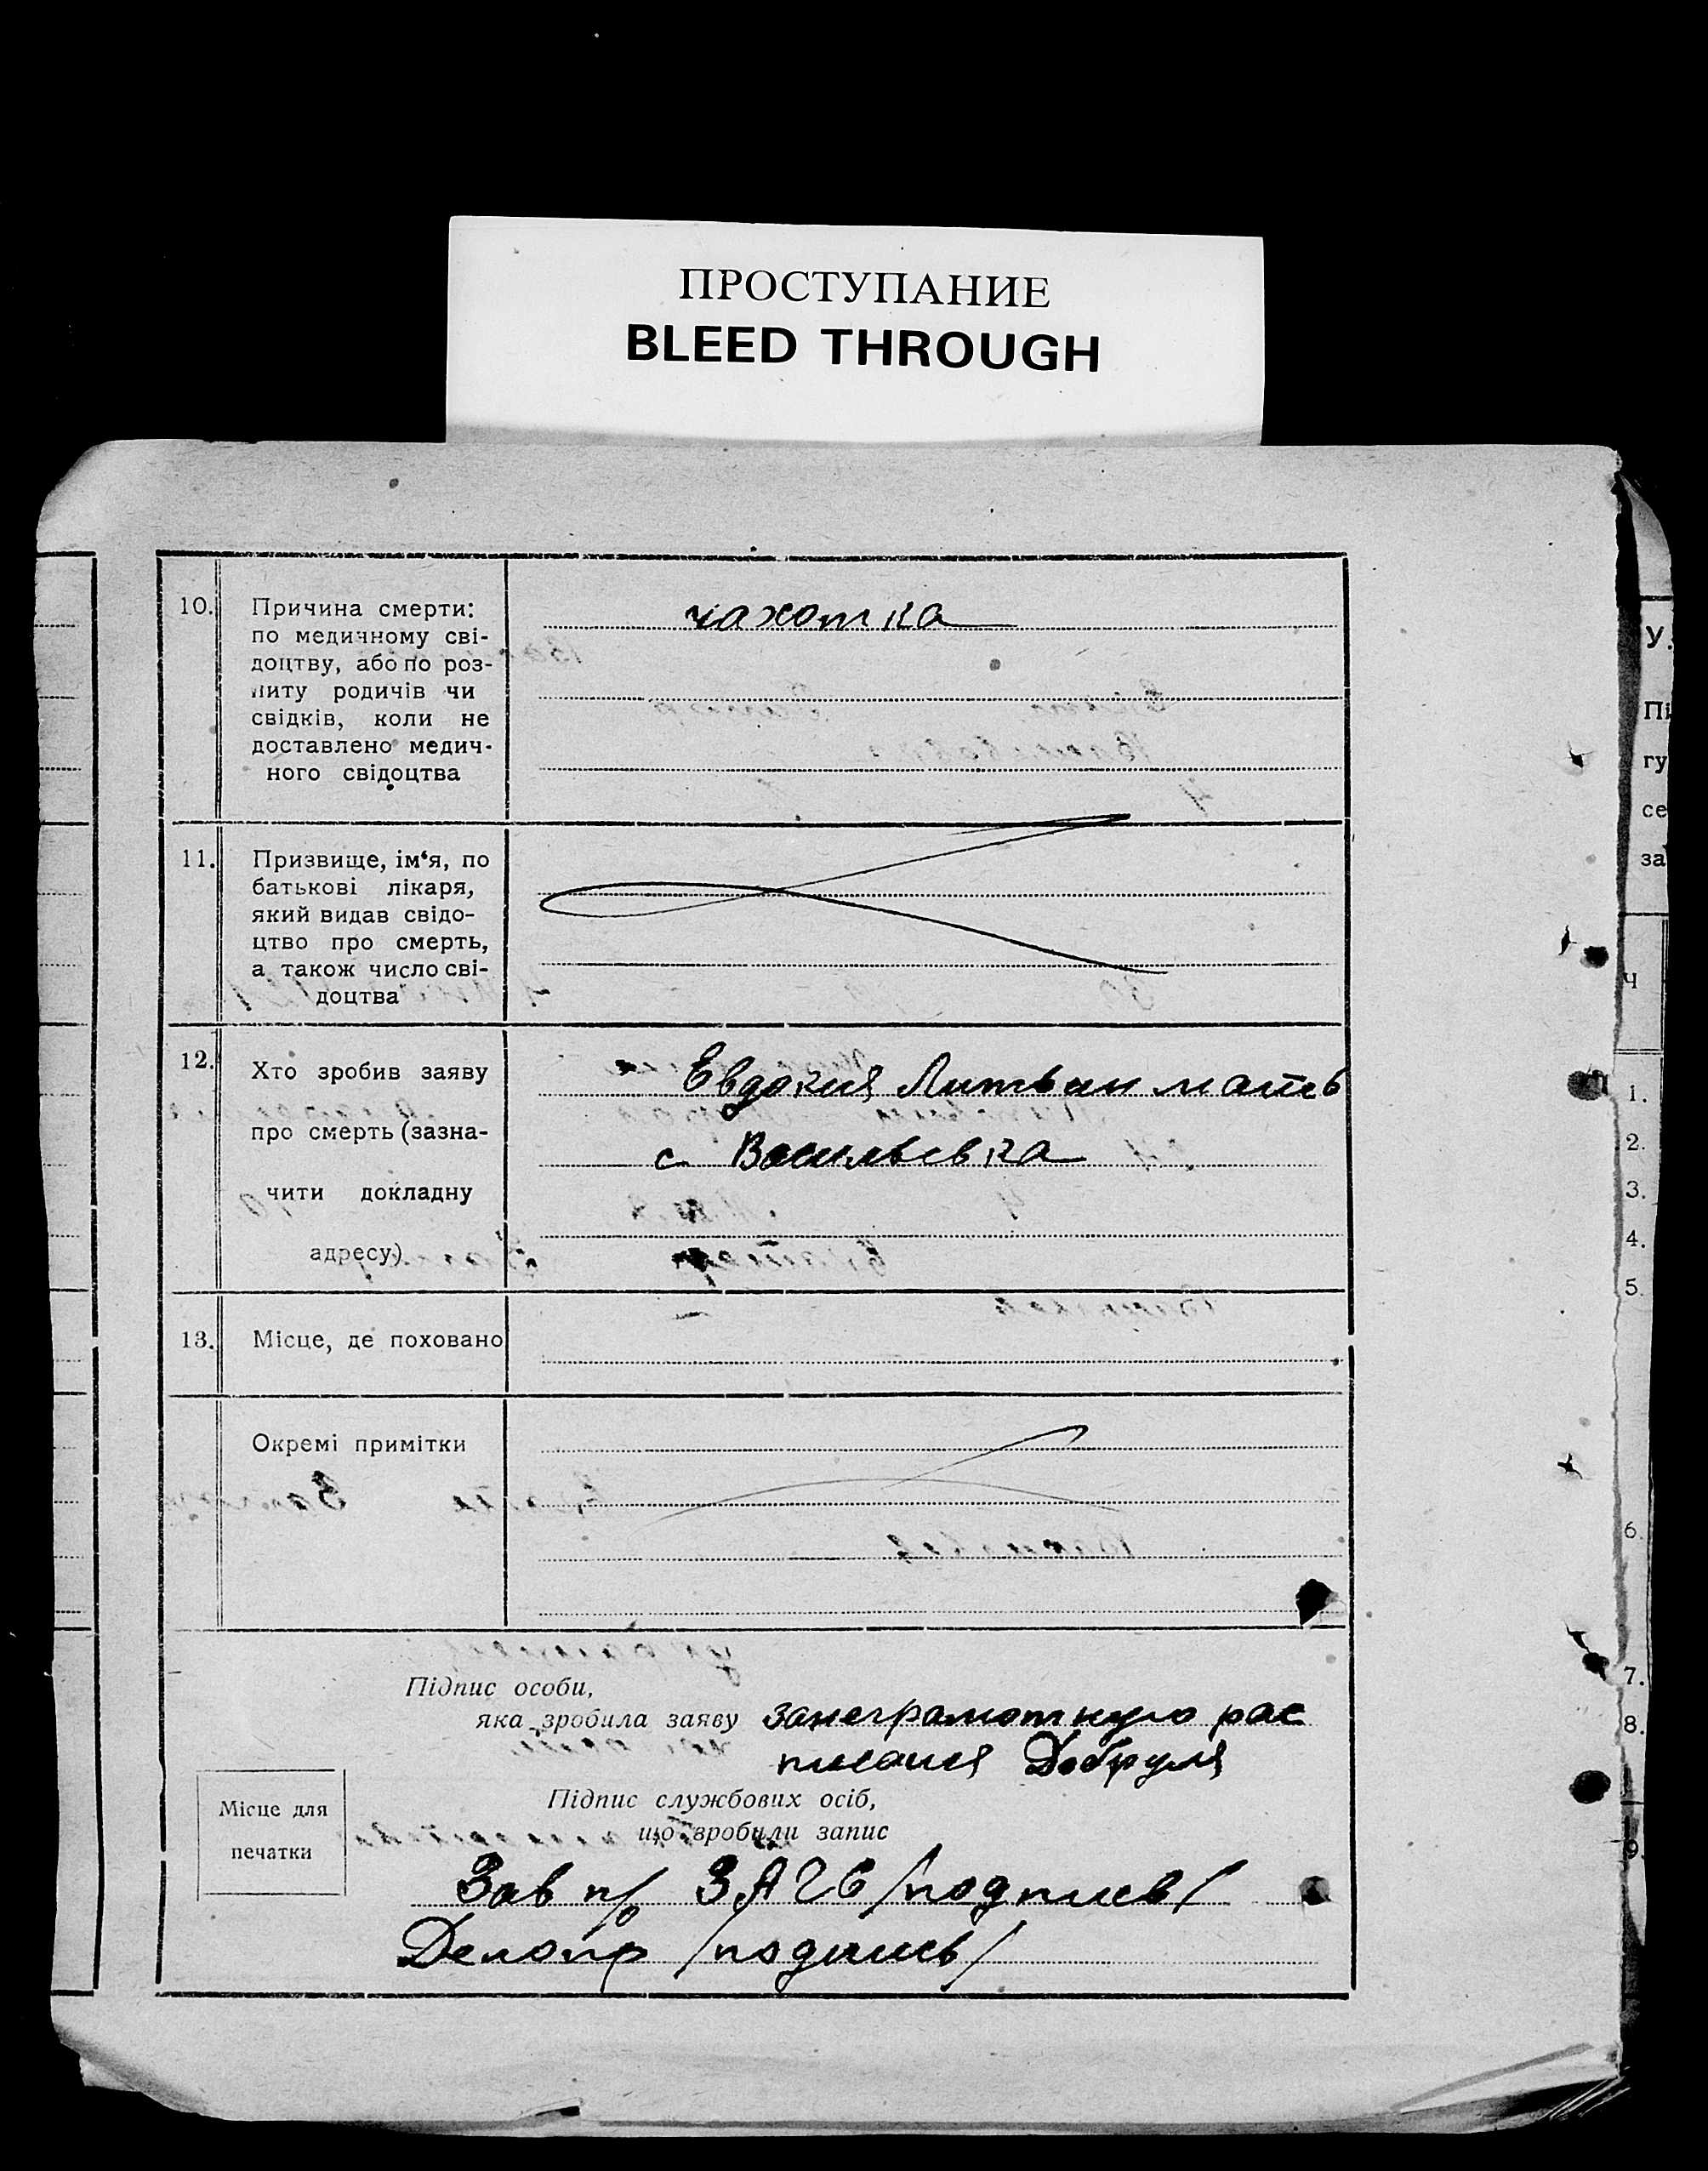 ПРОСТУПАНИЕ
BLEED THROUGH
10. Причина смерти:
по медичному сві-
доцтву, або по роз-
питу родичів чи
свідків, коли не
доставлено медич-
ного свідоцтва
чахотка
11. Призвище, ім‘я, по
батькові лікаря,
який видав свідо-
цтво про смерть,
а також число сві-
доцтва
12. Хто зробив заяву
про смерть (зазна-
чити докладну
адресу)
Евдокия Литвин мать
с. Васильевка
13. Місце, де поховано
Окремі примітки
Підпис особи,
яка зробила заяву занеграмотную рас
писался Добруля
Місце для
печатки
Підпис службових осіб,
що зробили запис
Зав п/о ЗАГС /подпись/
Делопр /подпись/
У.
Пі
гу
се
за
Ч
1.
2.
3.
4.
5.
6.
7.
8.
9.